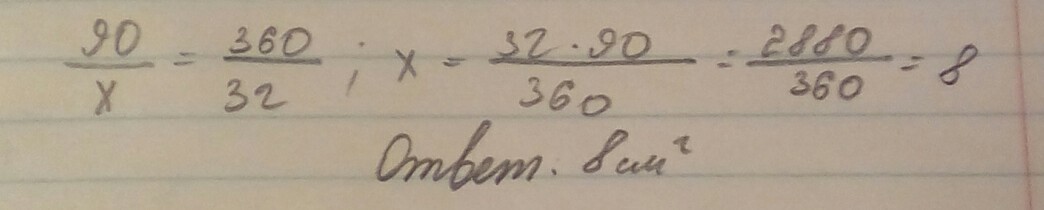 90/x = 360/32 ; x = 32 · 90/360 = 2880/360 = 8
Ответ. 8 см²